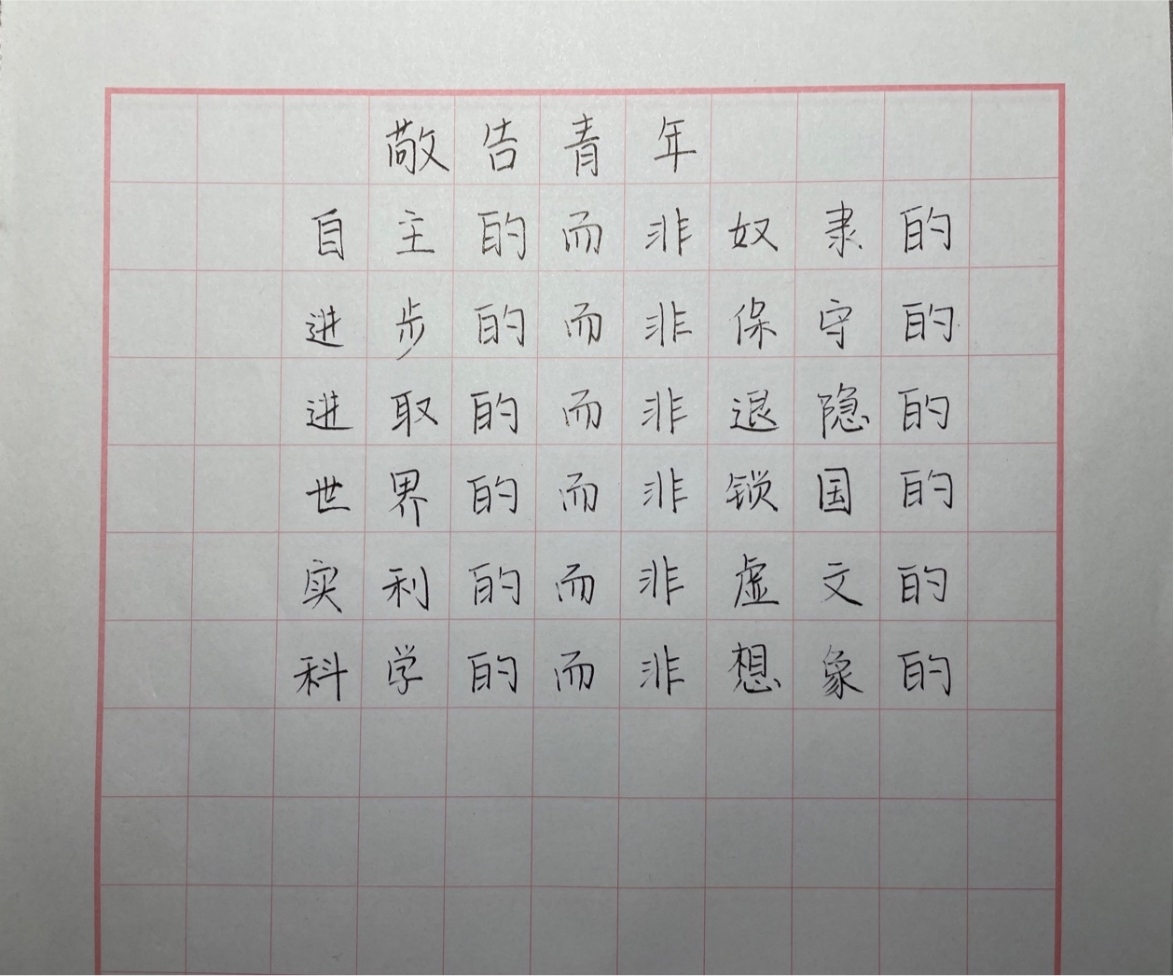 敬告青年
自主的而非奴隶的
进步的而非保守的
进取的而非退隐的
世界的而非锁国的
实利的而非虚文的
科学的而非想象的